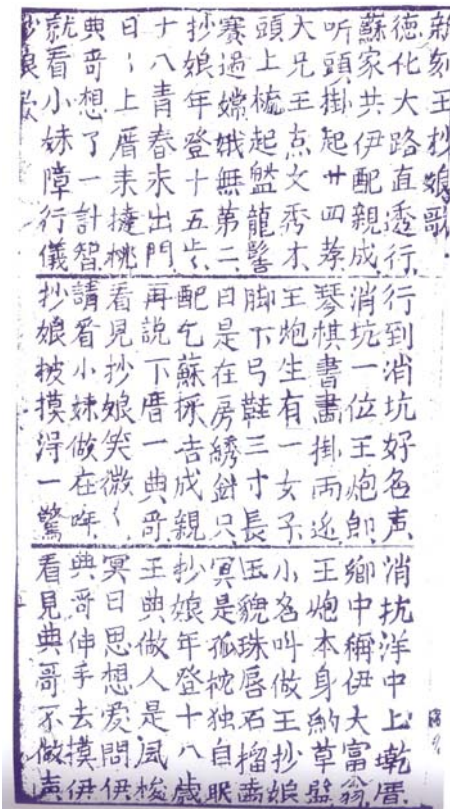 新刻王抄娘歌
德化大路直透行
行到消坑好名声
消坑洋中上乾厝
蘇家共伊配親成
消坑一位王炮郎
鄉中稱伊大富翁
听頭掛起廿四荐
琴棋書畫掛兩近
王炮本身納草監
大兄王点文秀才
王炮生有一女子
小名叫做王抄娘
頭上梳起盤龍髻
脚下弓鞋三寸長
玉貌珠唇石榴齒
賽過嫦娥無第二
日是在房綉針只
冥是孤枕独自眠
抄娘年登十五歩
配乞蘇採吉成親
抄娘年登十八歲
十八青春未出門
再說下厝一典哥
王典做人是風梭
日〻上厝来撻桃
看見抄娘笑微〻
冥日思想爱問伊
典哥想了一計智
請看小妹做在年
典哥伸手去摸伊
就看小妹障行儀
抄娘被摸淂一驚
看見典哥不做声
抄娘歌